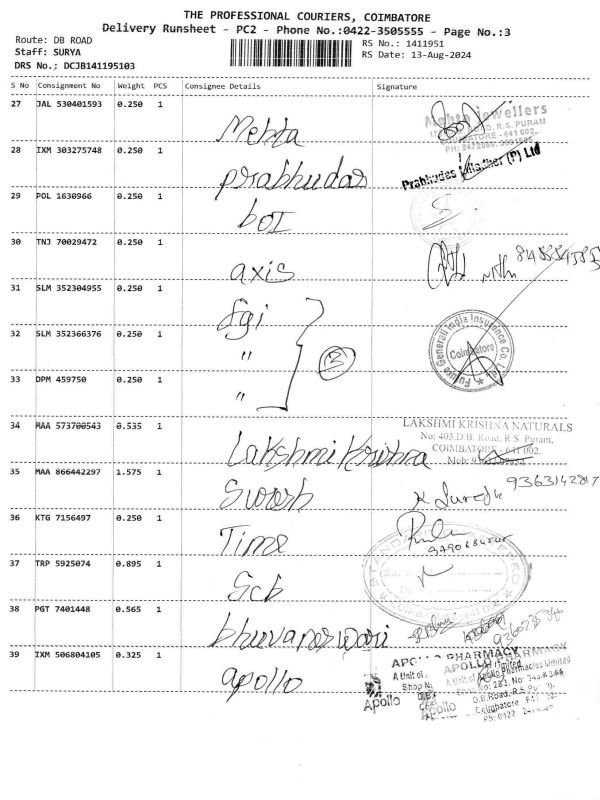 THE PROFESSIONAL COURIERS, COIMBATORE
Delivery Runsheet - PC2 - Phone No.:0422-3505555 - Page No.:3
Route: DB ROAD
RS No.: 1411951
Staff: SURYA
RS Date: 13-Aug-2024
DRS No.; DCJB141195103
S No Consignment No Weight PCS Consignee Details Signature
27 JAL 530401593 0.250 1 Mehta
Mehta Jewellers
R.S. PURAM
COIMBATORE - 641 002.
28 IXM 303275748 0.250 1 prabhudas
Prabhudas Lilladher (P) Ltd
29 POL 1630966 0.250 1 boI
30 TNJ 70029472 0.250 1 axis
31 SLM 352304955 0.250 1 fgi
32 SLM 352366376 0.250 1 " 3
Future Generali India Insurance Co. Ltd.
Coimbatore
33 DPM 459750 0.250 1 "
34 MAA 573700543 0.535 1 Lakshmi Krishna
LAKSHMI KRISHNA NATURALS
No: 403.D.B. Road, R.S. Puram,
COIMBATORE - 641 002.
Mob:
35 MAA 866442297 1.575 1 Suresh
K Suresh 9363142817
36 KTG 7156497 0.250 1 Time
37 TRP 5925074 0.895 1 Scb
38 PGT 7401448 0.565 1 bhuvaneswari
39 IXM 506804105 0.325 1 apollo
APOLLO PHARMACY
A Unit of Apollo Pharmacies Limited
D.B.Road, R.S.
Coimbatore
Ph: 0422
Apollo